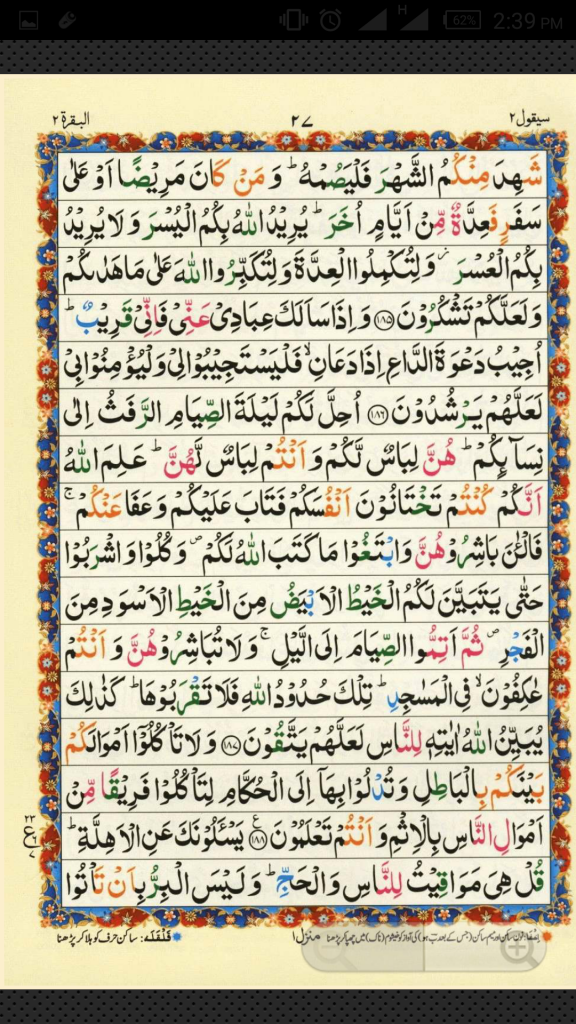 62% 2:39 PM
H
سیقول ٢ ٢٧ البقرة ٢
شَهِدَ مِنْكُمُ الشَّهْرَ فَلْيَصُمْهُ ؕ وَ مَنْ كَانَ مَرِيْضًا اَوْ عَلٰى
سَفَرٍ فَعِدَّةٌ مِّنْ اَيَّامٍ اُخَرَ ؕ يُرِيْدُ اللّٰهُ بِكُمُ الْيُسْرَ وَ لَا يُرِيْدُ
بِكُمُ الْعُسْرَ ؗ وَ لِتُكْمِلُوا الْعِدَّةَ وَ لِتُكَبِّرُوا اللّٰهَ عَلٰى مَا هَدٰىكُمْ
وَ لَعَلَّكُمْ تَشْكُرُوْنَ ﴿۱۸۵﴾ وَ اِذَا سَاَلَكَ عِبَادِيْ عَنِّيْ فَاِنِّيْ قَرِيْبٌ ؕ
اُجِيْبُ دَعْوَةَ الدَّاعِ اِذَا دَعَانِ ۙ فَلْيَسْتَجِيْبُوْا لِيْ وَ لْيُؤْمِنُوْا بِيْ
لَعَلَّهُمْ يَرْشُدُوْنَ ﴿۱۸۶﴾ اُحِلَّ لَكُمْ لَيْلَةَ الصِّيَامِ الرَّفَثُ اِلٰى
نِسَآىِٕكُمْ ؕ هُنَّ لِبَاسٌ لَّكُمْ وَ اَنْتُمْ لِبَاسٌ لَّهُنَّ ؕ عَلِمَ اللّٰهُ
اَنَّكُمْ كُنْتُمْ تَخْتَانُوْنَ اَنْفُسَكُمْ فَتَابَ عَلَيْكُمْ وَ عَفَا عَنْكُمْ ۚ
فَالْـٰٔنَ بَاشِرُوْهُنَّ وَ ابْتَغُوْا مَا كَتَبَ اللّٰهُ لَكُمْ ۪ وَ كُلُوْا وَ اشْرَبُوْا
حَتّٰى يَتَبَيَّنَ لَكُمُ الْخَيْطُ الْاَبْيَضُ مِنَ الْخَيْطِ الْاَسْوَدِ مِنَ
الْفَجْرِ ۪ ثُمَّ اَتِمُّوا الصِّيَامَ اِلَى الَّيْلِ ۚ وَ لَا تُبَاشِرُوْهُنَّ وَ اَنْتُمْ
عٰكِفُوْنَ ۙ فِي الْمَسٰجِدِ ؕ تِلْكَ حُدُوْدُ اللّٰهِ فَلَا تَقْرَبُوْهَا ؕ كَذٰلِكَ
يُبَيِّنُ اللّٰهُ اٰيٰتِهٖ لِلنَّاسِ لَعَلَّهُمْ يَتَّقُوْنَ ﴿۱۸۷﴾ وَ لَا تَاْكُلُوْۤا اَمْوَالَكُمْ
بَيْنَكُمْ بِالْبَاطِلِ وَ تُدْلُوْا بِهَاۤ اِلَى الْحُكَّامِ لِتَاْكُلُوْا فَرِيْقًا مِّنْ
اَمْوَالِ النَّاسِ بِالْاِثْمِ وَ اَنْتُمْ تَعْلَمُوْنَ ﴿۱۸۸﴾ ع يَسْـَٔلُوْنَكَ عَنِ الْاَهِلَّةِ ؕ
٢٣
ع
٧
قُلْ هِيَ مَوَاقِيْتُ لِلنَّاسِ وَ الْحَجِّ ؕ وَ لَيْسَ الْبِرُّ بِاَنْ تَاْتُوا
منزل ١
قلقلہ: ساکن حرف کو ہلا کر پڑھنا